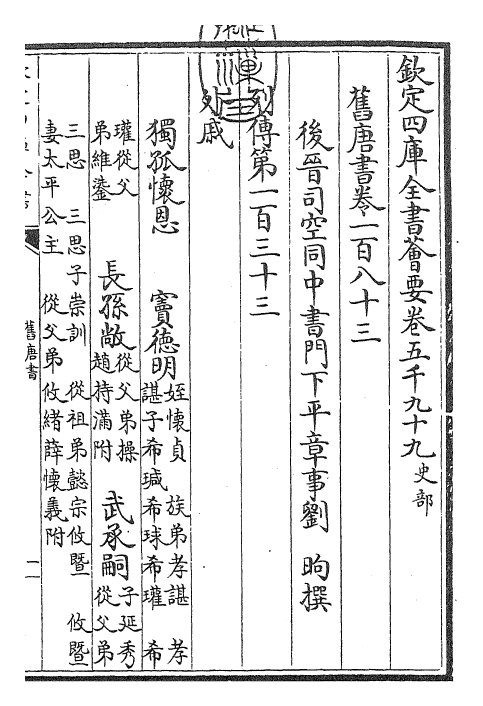 欽定四庫全書薈要卷五千九十九 史部
舊唐書卷一百八十三
後晉司空同中書門下平章事劉 昫撰
列傳第一百三十三
外戚
獨孤懷恩 竇德明 姪懷貞 族弟孝諶 孝
諶子希瑊希球希瓘 希
瓘從父
弟維鍌 長孫敞 從父弟操
趙持滿附 武承嗣 子延秀
從父弟
三思 三思子崇訓 從祖弟懿宗攸暨 攸暨
妻太平公主 從父弟攸緒薛懷義附
舊唐書